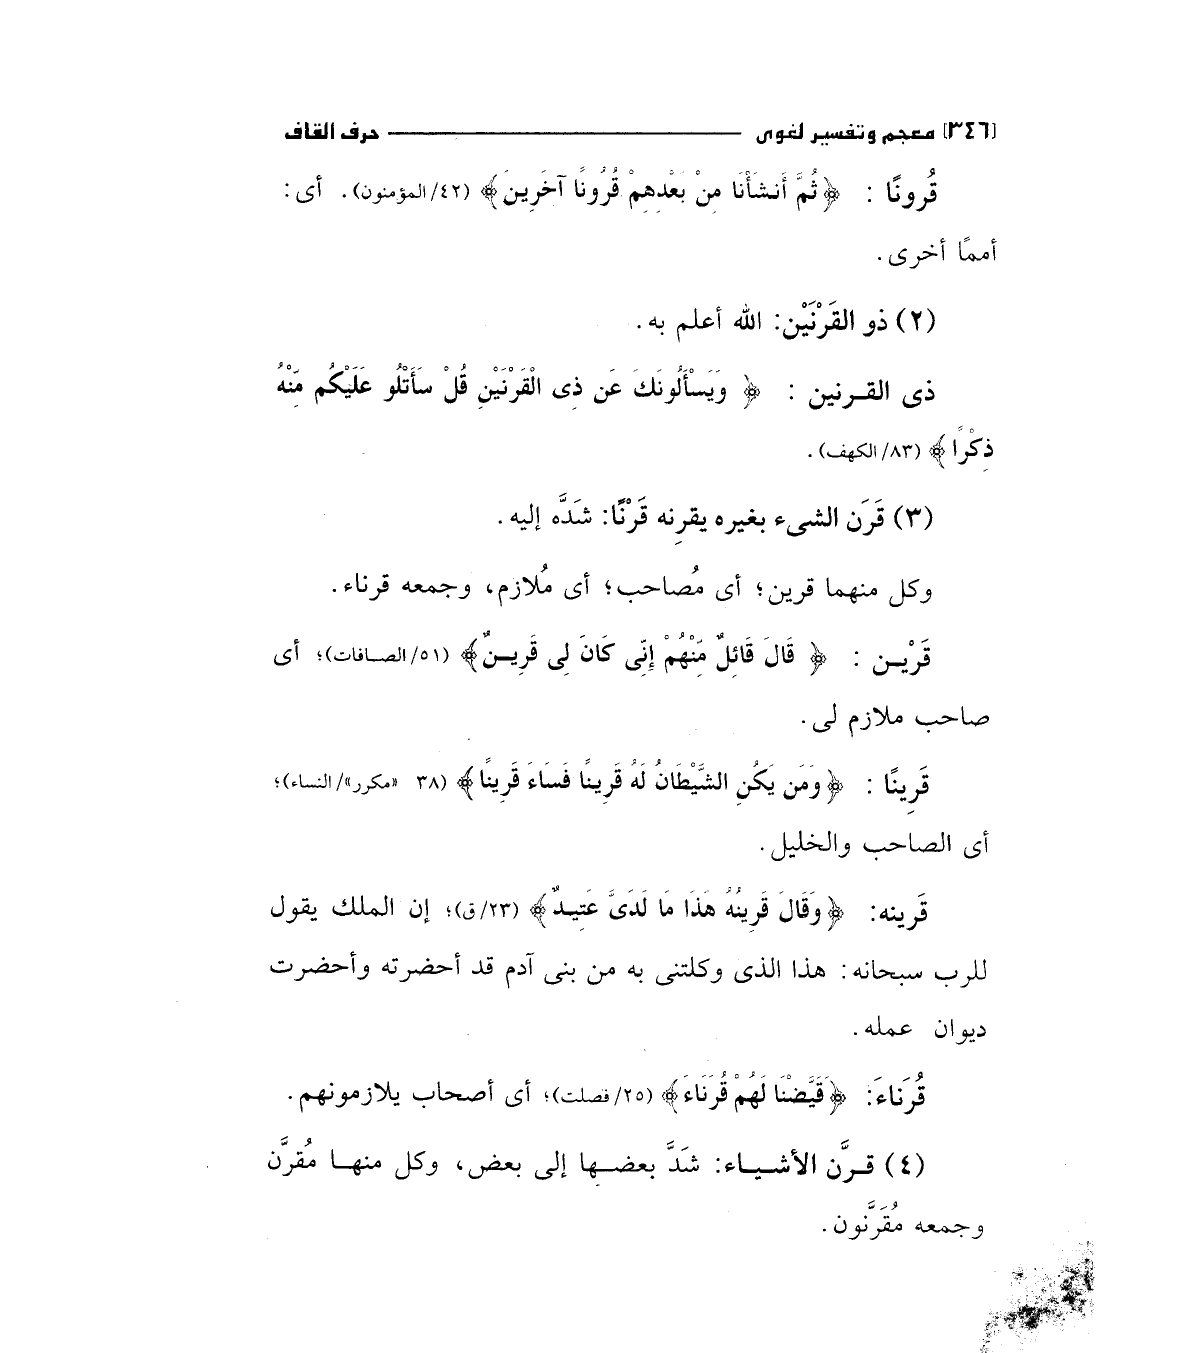 [٣٤٦] معجم وتفسير لغوى ــــــــــــــــــــ حرف القاف
قُرونًا : ﴿ثُمَّ أَنشَأْنَا مِنْ بَعْدِهِمْ قُرُونًا آخَرِينَ﴾ (٤٢/المؤمنون). أى:
أممًا أخرى.
(٢) ذو القَرْنَيْن: الله أعلم به.
ذى القرنين : ﴿ وَيَسْأَلُونَكَ عَن ذِى الْقَرْنَيْنِ قُلْ سَأَتْلُو عَلَيْكُم مِّنْهُ
ذِكْرًا﴾ (٨٣/الكهف).
(٣) قَرَن الشىء بغيره يقرِنه قَرْنًا: شدَّه إليه.
وكل منهما قرين؛ أى مُصاحب؛ أى مُلازم، وجمعه قرناء.
قَرْين : ﴿ قَالَ قَائِلٌ مِّنْهُمْ إِنِّى كَانَ لِى قَرِينٌ﴾ (٥١/الصافات)؛ أى
صاحب ملازم لى.
قَرِينًا : ﴿وَمَن يَكُنِ الشَّيْطَانُ لَهُ قَرِينًا فَسَاءَ قَرِينًا﴾ (٣٨ «مكرر»/النساء)؛
أى الصاحب والخليل.
قَرينه: ﴿وَقَالَ قَرِينُهُ هَذَا مَا لَدَىَّ عَتِيدٌ﴾ (٢٣/ق)؛ إن الملك يقول
للرب سبحانه: هذا الذى وكلتنى به من بنى آدم قد أحضرته وأحضرت
ديوان عمله.
قُرَناءَ: ﴿قَيَّضْنَا لَهُمْ قُرَنَاءَ﴾ (٢٥/فصلت)؛ أى أصحاب يلازمونهم.
(٤) قرَّن الأشياء: شدَّ بعضها إلى بعض، وكل منها مُقرَّن
وجمعه مُقَرَّنون.